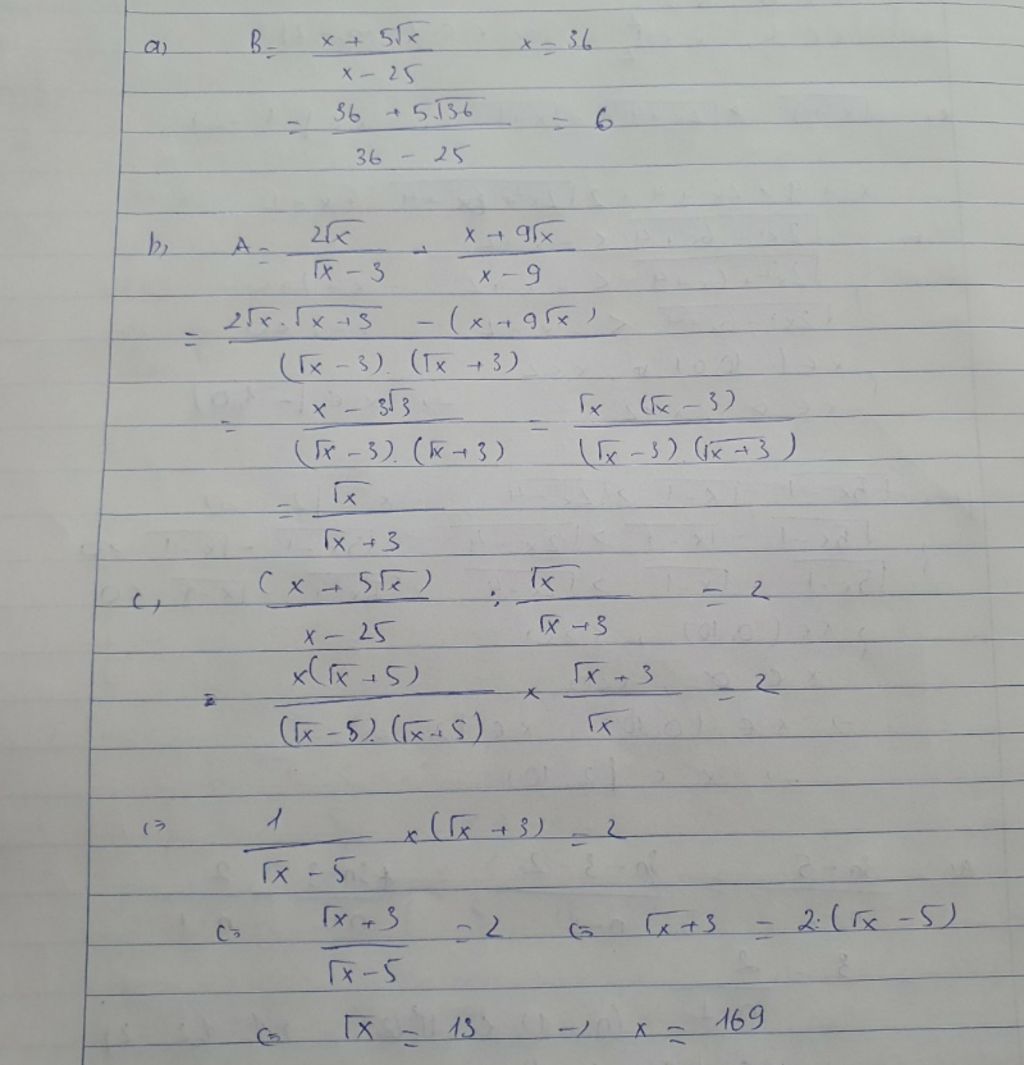 a) B = (x + 5√x)/(x - 25) x = 36
= (36 + 5√36)/(36 - 25) = 6
b) A = 2√x/(√x - 3) - (x + 9√x)/(x - 9)
= (2√x.√(x + 3) - (x + 9√x))/((√x - 3).(√x + 3))
= (x - 3√3)/((√x - 3).(√x + 3)) = (√x (√x - 3))/((√x - 3)(√x + 3))
= √x/(√x + 3)
c, (x + 5√x)/(x - 25) : √x/(√x + 3) = 2
= x(√x + 5)/((√x - 5).(√x + 5)) × (√x + 3)/√x = 2
(= 1/(√x - 5) × (√x + 3) = 2
(= (√x + 3)/(√x - 5) = 2 (= √x + 3 = 2.(√x - 5)
(= √x = 13 → x = 169